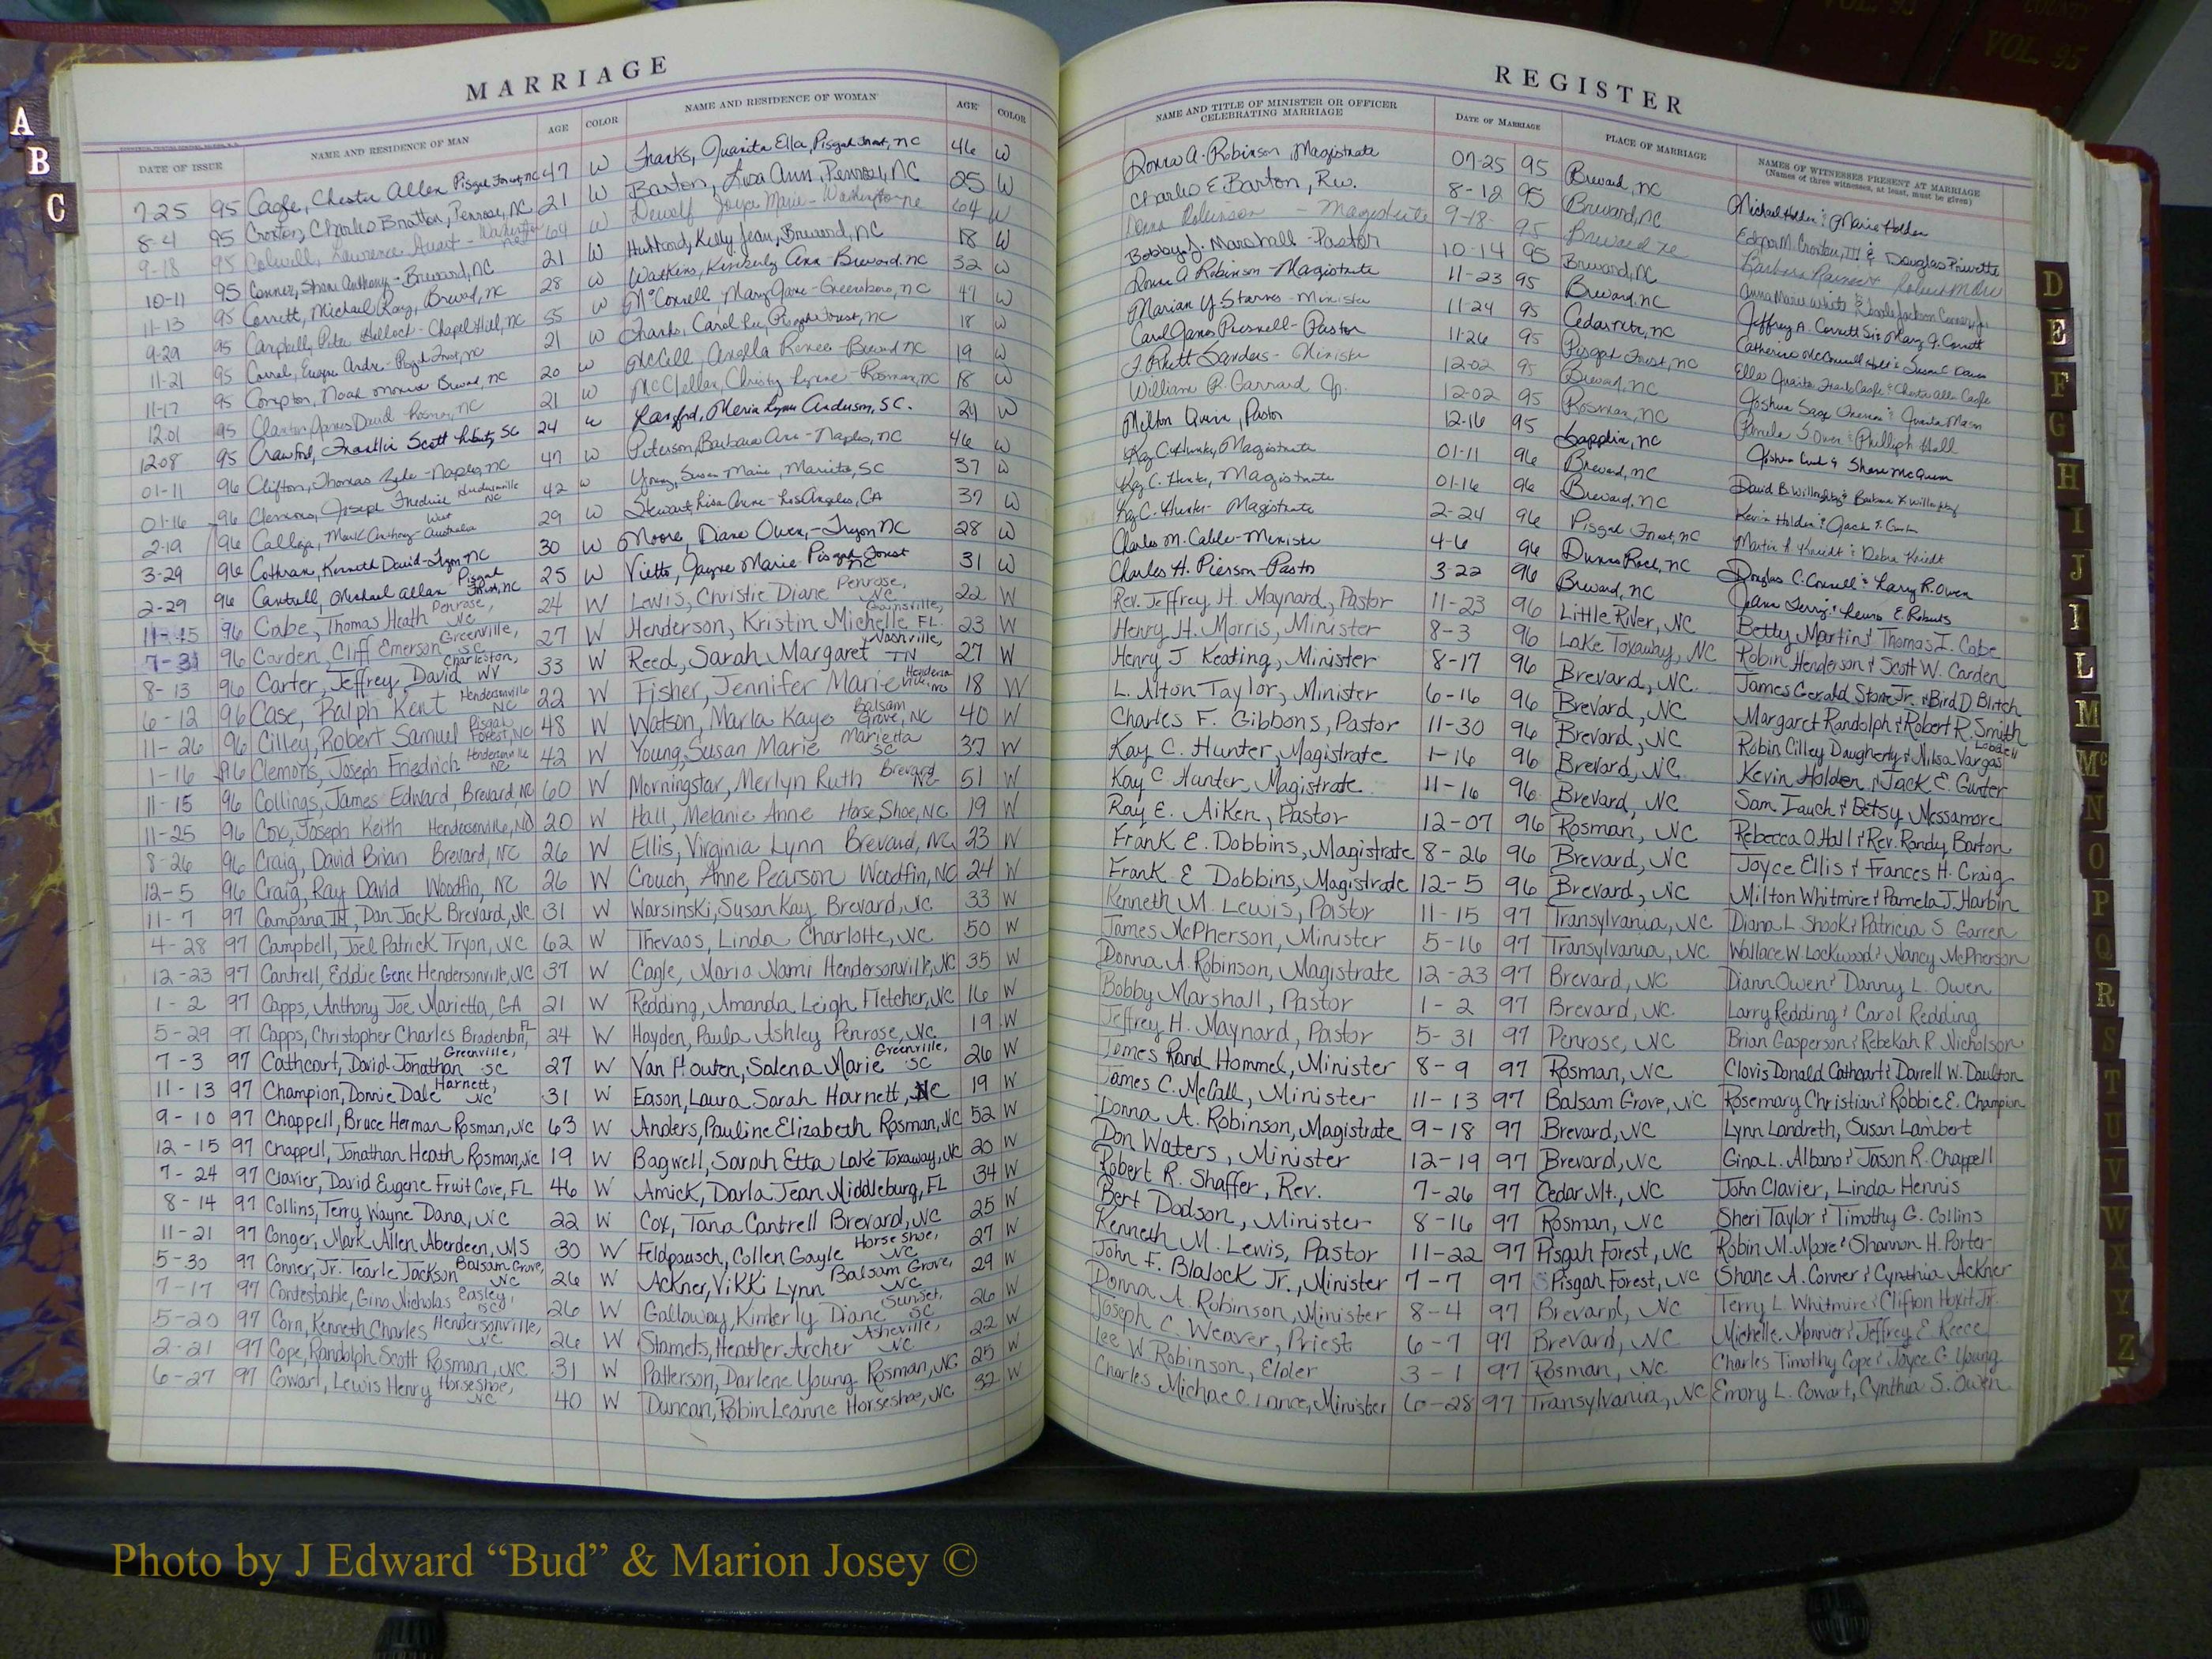 COUNTY
VOL. 95
VOL. 95
MARRIAGE
REGISTER
DATE OF ISSUE NAME AND RESIDENCE OF MAN AGE COLOR NAME AND RESIDENCE OF WOMAN AGE COLOR NAME AND TITLE OF MINISTER OR OFFICER CELEBRATING MARRIAGE DATE OF MARRIAGE PLACE OF MARRIAGE NAMES OF WITNESSES PRESENT AT MARRIAGE
(Names of three witnesses, at least, must be given)
7-25 95 Cagle, Chester Allen Pisgah Forest, NC 47 W Franks, Juanita Ella, Pisgah Forest, NC 46 W Donna A. Robinson, Magistrate 07-25 95 Brevard, NC Michael Holden & Marie Holden
8-4 95 Croxton, Charles Bratton, Penrose, NC 21 W Barton, Lisa Ann, Penrose, NC 25 W Charles E Barton, Rev. 8-12 95 Brevard, NC Edgar M. Croxton, III & Douglas Privette
9-18 95 Colwell, Lawrence 64 W Dewolf Joyce Marie - 64 W Donna Robinson - Magistrate 9-18 95 Brevard NC Barbara
10-11 95 Conner, Shane Anthony - Brevard, NC 21 W Hubbard, Kelly Jean, Brevard, NC 18 W Bobby J. Marshall - Pastor 10-14 95 Brevard, NC Anna Marie White & Jackson Conner Jr.
11-13 95 Corrett, Michael Ray, Brevard, NC 28 W Watkins, Kimberly Ann - Brevard, NC 32 W Donna A Robinson - Magistrate 11-23 95 Brevard, NC Jeffrey A. Corrett
9-29 95 Campbell, Peter - Chapel Hill, NC 55 W McConnell Mary Jane - Greensboro, NC 47 W Marian Y. Starnes - Minister 11-24 95 NC Catherine McConnell
11-21 95 Corral, Eugene Andre - Pisgah Forest, NC 21 W Franks, Carol Lee, Pisgah Forest, NC 18 W Carl James Presnell - Pastor 11-26 95 Pisgah Forest, NC Ella Juanita Franks Cagle & Chester Allen Cagle
11-17 95 Compton, Noah Brevard, NC 20 W McCall, Angella Renee - Brevard NC 19 W F. Rhett Sanders - Minister 12-02 95 Brevard, NC Joshua & Juanita Mason
12-01 95 James David Rosman, NC 21 W McClellan, Christy - Rosman, NC 18 W William R. Garrard Jr. 12-02 95 Rosman, NC Pamela S Owen & Phillip Hall
12-08 95 Crawford, Franklin Scott Liberty, SC 24 W Lynn Anderson, SC. 24 W Melton Pastor 12-16 95 Sapphire, NC & Shane McQueen
01-11 96 Clifton, Thomas - Naples, NC 47 W Peterson, Barbara Ann - Naples, NC 46 W Kay C. Hunter, Magistrate 01-11 96 Brevard, NC David B. Willoughby & Barbara K Willoughby
01-16 96 Clemons, Joseph Friedrich Hendersonville NC 42 W Young, Susan Marie, Marietta, SC 37 W Kay C. Hunter, Magistrate 01-16 96 Brevard, NC Kevin Holden & Jack E. Gunter
2-19 96 Calleja, Mark Anthony - West Australia 29 W Stewart, Lisa Anne - Los Angeles, CA 37 W Kay C. Hunter - Magistrate 2-24 96 Pisgah Forest, NC Martin & Debra
3-29 96 Cothran, Kenneth David - Tryon NC 30 W Moore, Diane Owen, - Tryon NC 28 W Charles M. Cable - Minister 4-6 96 Dunns Rock, NC Douglas C. Connell & Larry R. Owen
2-29 96 Cantrell, Michael Allan Pisgah Forest, NC 25 W Vietto, Jayne Marie Pisgah Forest NC 31 W Charles H. Pierson - Pastor 3-22 96 Brevard, NC Jann Terry & Lewis E. Roberts
11-15 96 Cabe, Thomas Heath Penrose, NC 24 W Lewis, Christie Diane Penrose, NC 22 W Rev. Jeffrey H. Maynard, Pastor 11-23 96 Little River, NC Betty Martin & Thomas I. Cabe
7-31 96 Carden, Cliff Emerson Greenville, SC 27 W Henderson, Kristin Michelle Gainsville, FL. 23 W Henry H. Morris, Minister 8-3 96 Lake Toxaway, NC Robin Henderson & Scott W. Carden
8-13 96 Carter, Jeffrey David Charleston, WV 33 W Reed, Sarah Margaret Nashville, TN 27 W Henry J Keating, Minister 8-17 96 Brevard, NC. James Gerald Stone Jr. & Bird D Blitch
6-12 96 Case, Ralph Kent Hendersonville NC 22 W Fisher, Jennifer Marie 18 W L. Alton Taylor, Minister 6-16 96 Brevard, NC Margaret Randolph & Robert R. Smith
11-26 96 Cilley, Robert Samuel Pisgah Forest, NC 48 W Watson, Marla Kaye Balsam Grove, NC 40 W Charles F. Gibbons, Pastor 11-30 96 Brevard, NC Robin Cilley Daugherty & Nilsa Vargas
1-16 96 Clemons, Joseph Friedrich Hendersonville NC 42 W Young, Susan Marie Marietta SC 37 W Kay C. Hunter, Magistrate 1-16 96 Brevard, NC Kevin Holden & Jack E. Gunter
11-15 96 Collings, James Edward, Brevard, NC 60 W Morningstar, Merlyn Ruth Brevard NC 51 W Kay C Hunter, Magistrate 11-16 96 Brevard, NC Sam Fauch & Betsy Messamore
11-25 96 Cox, Joseph Keith Hendersonville, NC 20 W Hall, Melanie Anne Horse Shoe, NC 19 W Ray E. Aiken, Pastor 12-07 96 Rosman, NC Rebecca O. Hall & Rev. Randy Barton
8-26 96 Craig, David Brian Brevard, NC 26 W Ellis, Virginia Lynn Brevard, NC 23 W Frank E. Dobbins, Magistrate 8-26 96 Brevard, NC Joyce Ellis & Frances H. Craig
12-5 96 Craig, Ray David Woodfin, NC 26 W Crouch, Anne Pearson Woodfin, NC 24 W Frank E Dobbins, Magistrate 12-5 96 Brevard, NC Milton Whitmire & Pamela J. Harbin
11-7 97 Campana III, Dan Jack Brevard, NC 31 W Warsinski, Susan Kay Brevard, NC 33 W Kenneth M. Lewis, Pastor 11-15 97 Transylvania, NC Diana L Shook & Patricia S Garren
4-28 97 Campbell, Joel Patrick Tryon, NC 62 W Thevaos, Linda Charlotte, NC 50 W James McPherson, Minister 5-16 97 Transylvania, NC Wallace W. Lockwood & Nancy McPherson
12-23 97 Cantrell, Eddie Gene Hendersonville, NC 37 W Cagle, Maria Nami Hendersonville, NC 35 W Donna A. Robinson, Magistrate 12-23 97 Brevard, NC Diann Owen & Danny L. Owen
1-2 97 Capps, Anthony Joe Marietta, GA 21 W Redding, Amanda Leigh Fletcher, NC 16 W Bobby Marshall, Pastor 1-2 97 Brevard, NC. Larry Redding & Carol Redding
5-29 97 Capps, Christopher Charles Bradenton, FL 24 W Hayden, Paula Ashley Penrose, NC 19 W Jeffrey H. Maynard, Pastor 5-31 97 Penrose, NC Brian Gasperson & Rebekah R. Nicholson
7-3 97 Cathcart, David Jonathan Greenville, SC 27 W Van Houten, Salena Marie Greenville, SC 26 W James Rand Hommel, Minister 8-9 97 Rosman, NC Clovis Donald Cathcart & Darrell W. Daulton
11-13 97 Champion, Donnie Dale Harnett, NC 31 W Eason, Laura Sarah Harnett, NC 19 W James C. McCall, Minister 11-13 97 Balsam Grove, NC Rosemary Christian & Robbie E. Champion
9-10 97 Chappell, Bruce Herman Rosman, NC 63 W Anders, Pauline Elizabeth Rosman, NC 52 W Donna A. Robinson, Magistrate 9-18 97 Brevard, NC Lynn Landreth, Susan Lambert
12-15 97 Chappell, Jonathan Heath Rosman, NC 19 W Bagwell, Sarah Etta Lake Toxaway, NC 20 W Don Waters, Minister 12-19 97 Brevard, NC Gina L. Albano & Jason R. Chappell
7-24 97 Clavier, David Eugene Fruit Cove, FL 46 W Amick, Darla Jean Middleburg, FL 34 W Robert R. Shaffer, Rev. 7-26 97 Cedar Mt., NC John Clavier, Linda Hennis
8-14 97 Collins, Terry Wayne Dana, NC 22 W Cox, Tana Cantrell Brevard, NC 25 W Bert Dodson, Minister 8-16 97 Rosman, NC Sheri Taylor & Timothy G. Collins
11-21 97 Conger, Mark Allen Aberdeen, MS 30 W Feldpausch, Collen Gayle Horse Shoe, NC 27 W Kenneth M. Lewis, Pastor 11-22 97 Pisgah Forest, NC Robin M. Moore & Shannon H. Porter
5-30 97 Conner, Jr. Tearle Jackson Balsam Grove, NC 26 W Ackner, Vikki Lynn Balsam Grove, NC 29 W John F. Blalock Jr., Minister 7-7 97 Pisgah Forest, NC Shane A. Conner & Cynthia Ackner
7-17 97 Contestable, Gino Nicholas Easley, SC 26 W Galloway, Kimberly Diane Sunset, SC 26 W Donna A. Robinson, Minister 8-4 97 Brevard, NC Terry L Whitmire & Clifton Hoxit Jr.
5-20 97 Corn, Kenneth Charles Hendersonville, NC 26 W Stamets, Heather Archer Asheville, NC 22 W Joseph C. Weaver, Priest 6-7 97 Brevard, NC Michelle Monnier & Jeffrey E Reece
2-21 97 Cope, Randolph Scott Rosman, NC 31 W Patterson, Darlene Young Rosman, NC 25 W Lee W Robinson, Elder 3-1 97 Rosman, NC Charles Timothy Cope & Joyce G Young
6-27 97 Cowart, Lewis Henry Horseshoe, NC 40 W Duncan, Robin Leanne Horseshoe, NC 32 W Charles Michael Lance, Minister 6-28 97 Transylvania, NC Emory L. Cowart, Cynthia S. Owen
A
B
C
D
E
F
G
H
I
J
L
M
Mc
N
O
P
Q
R
S
T
U
V
W
X
Y
Z
Photo by J Edward “Bud” & Marion Josey ©